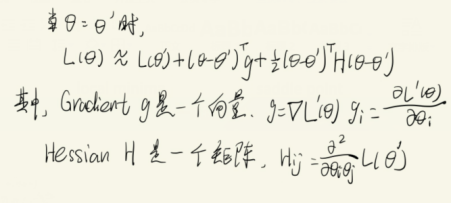 当θ=θ'时,
L(θ) ≈ L(θ')+(θ-θ')ᵀg+½(θ-θ')ᵀH(θ-θ')
其中, Gradient g是一个向量. g=∇L'(θ) gᵢ=∂L'(θ)/∂θᵢ
Hessian H 是一个矩阵, Hij=∂²/∂θᵢθⱼ L(θ')